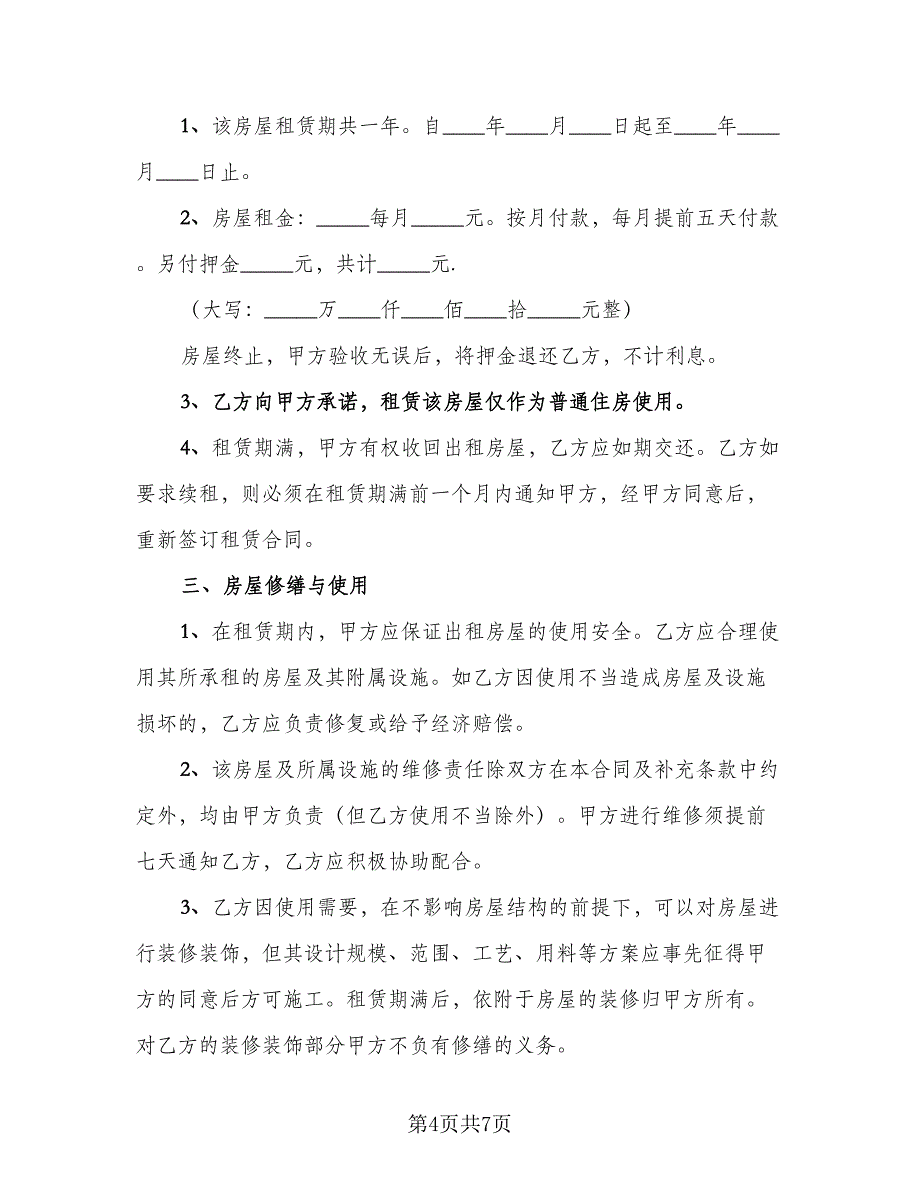 1、该房屋租赁期共一年。自____年____月____日起至____年____
月____日止。
2、房屋租金：_____每月_____元。按月付款，每月提前五天付款
。另付押金_____元，共计_____元.
（大写：_____万____仟____佰____拾_____元整）
房屋终止，甲方验收无误后，将押金退还乙方，不计利息。
3、乙方向甲方承诺，租赁该房屋仅作为普通住房使用。
4、租赁期满，甲方有权收回出租房屋，乙方应如期交还。乙方如
要求续租，则必须在租赁期满前一个月内通知甲方，经甲方同意后，
重新签订租赁合同。
三、房屋修缮与使用
1、在租赁期内，甲方应保证出租房屋的使用安全。乙方应合理使
用其所承租的房屋及其附属设施。如乙方因使用不当造成房屋及设施
损坏的，乙方应负责修复或给予经济赔偿。
2、该房屋及所属设施的维修责任除双方在本合同及补充条款中约
定外，均由甲方负责（但乙方使用不当除外）。甲方进行维修须提前
七天通知乙方，乙方应积极协助配合。
3、乙方因使用需要，在不影响房屋结构的前提下，可以对房屋进
行装修装饰，但其设计规模、范围、工艺、用料等方案应事先征得甲
方的同意后方可施工。租赁期满后，依附于房屋的装修归甲方所有。
对乙方的装修装饰部分甲方不负有修缮的义务。
第4页共7页